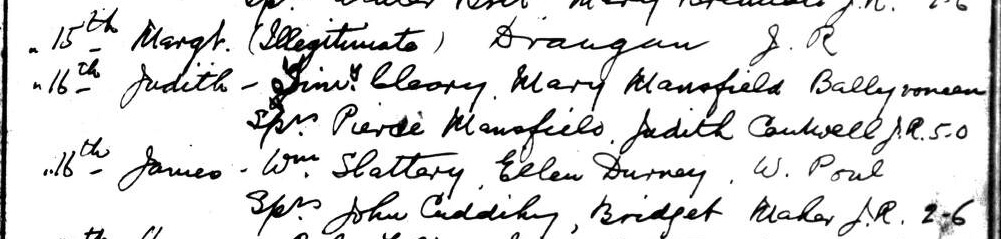 Sprs Walter Mary J.R. 2-6
" 15th Margt. (Illegitimate) Drangan J. R
" 16th Judith - Timy Cleary, Mary Mansfield Ballyvoneen
Sprs Pierce Mansfield, Judith Cantwell J.R. 5-0
" 16th James - Wm. Slattery, Ellen Durney, W. Poul
Sprs John Cuddihy, Bridget Maher J.R. 2-6